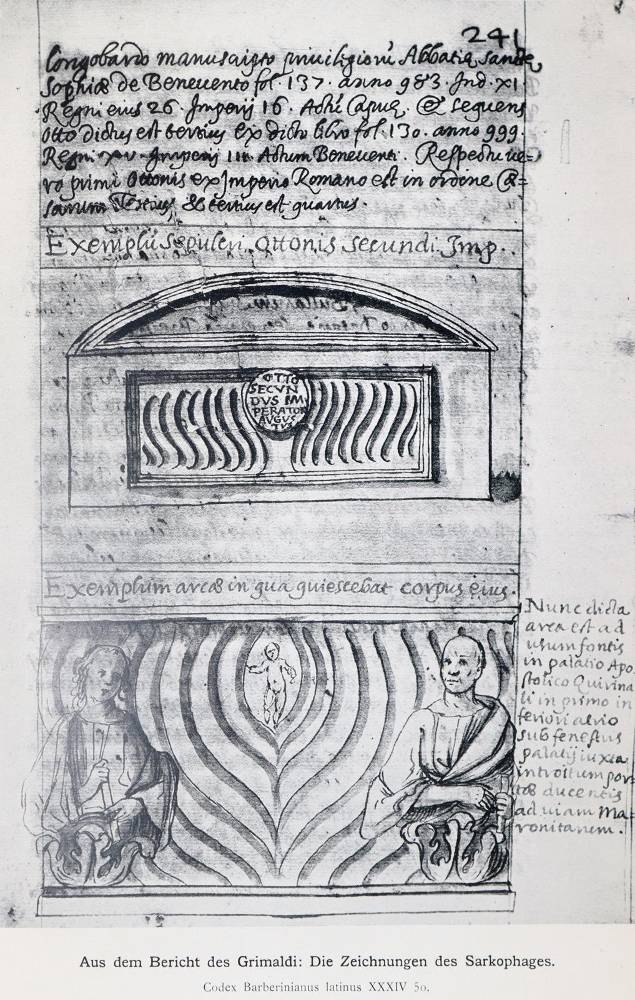 241
longobardo manuscripto priuilegiorũ Abbatiæ sanctæ
Sophiæ de Beneuento fol. 137. anno 983. Ind. XI
Regni eius 26. Imperij 16. Actũ Capuæ. & seguens
Otto dictus est tertius ex dicto libro fol. 130. anno 999.
Regni XV. Imperij III. Actum Beneuenti. Respectu ue-
ro primi Ottonis ex Imperio Romano est in ordine Cæ-
sarum Tertius, & tertius est quartus.
Exemplũ sepulcri Ottonis secundi Imp.
OTTO
SECVN
DVS IM
PERATOR
AVGVS
TVS
Exemplum arcæ in qua quiescebat corpus eius.
Nunc dicta
arca est ad
usum fontis
in palatio Apo
stolico Quirina
li in primo in
feriori atrio
sub fenestris
palatij iuxta
introitum por-
tæ ducentis
ad uiam Ma-
ronitanem.
Aus dem Bericht des Grimaldi: Die Zeichnungen des Sarkophages.
Codex Barberinianus latinus XXXIV 50.